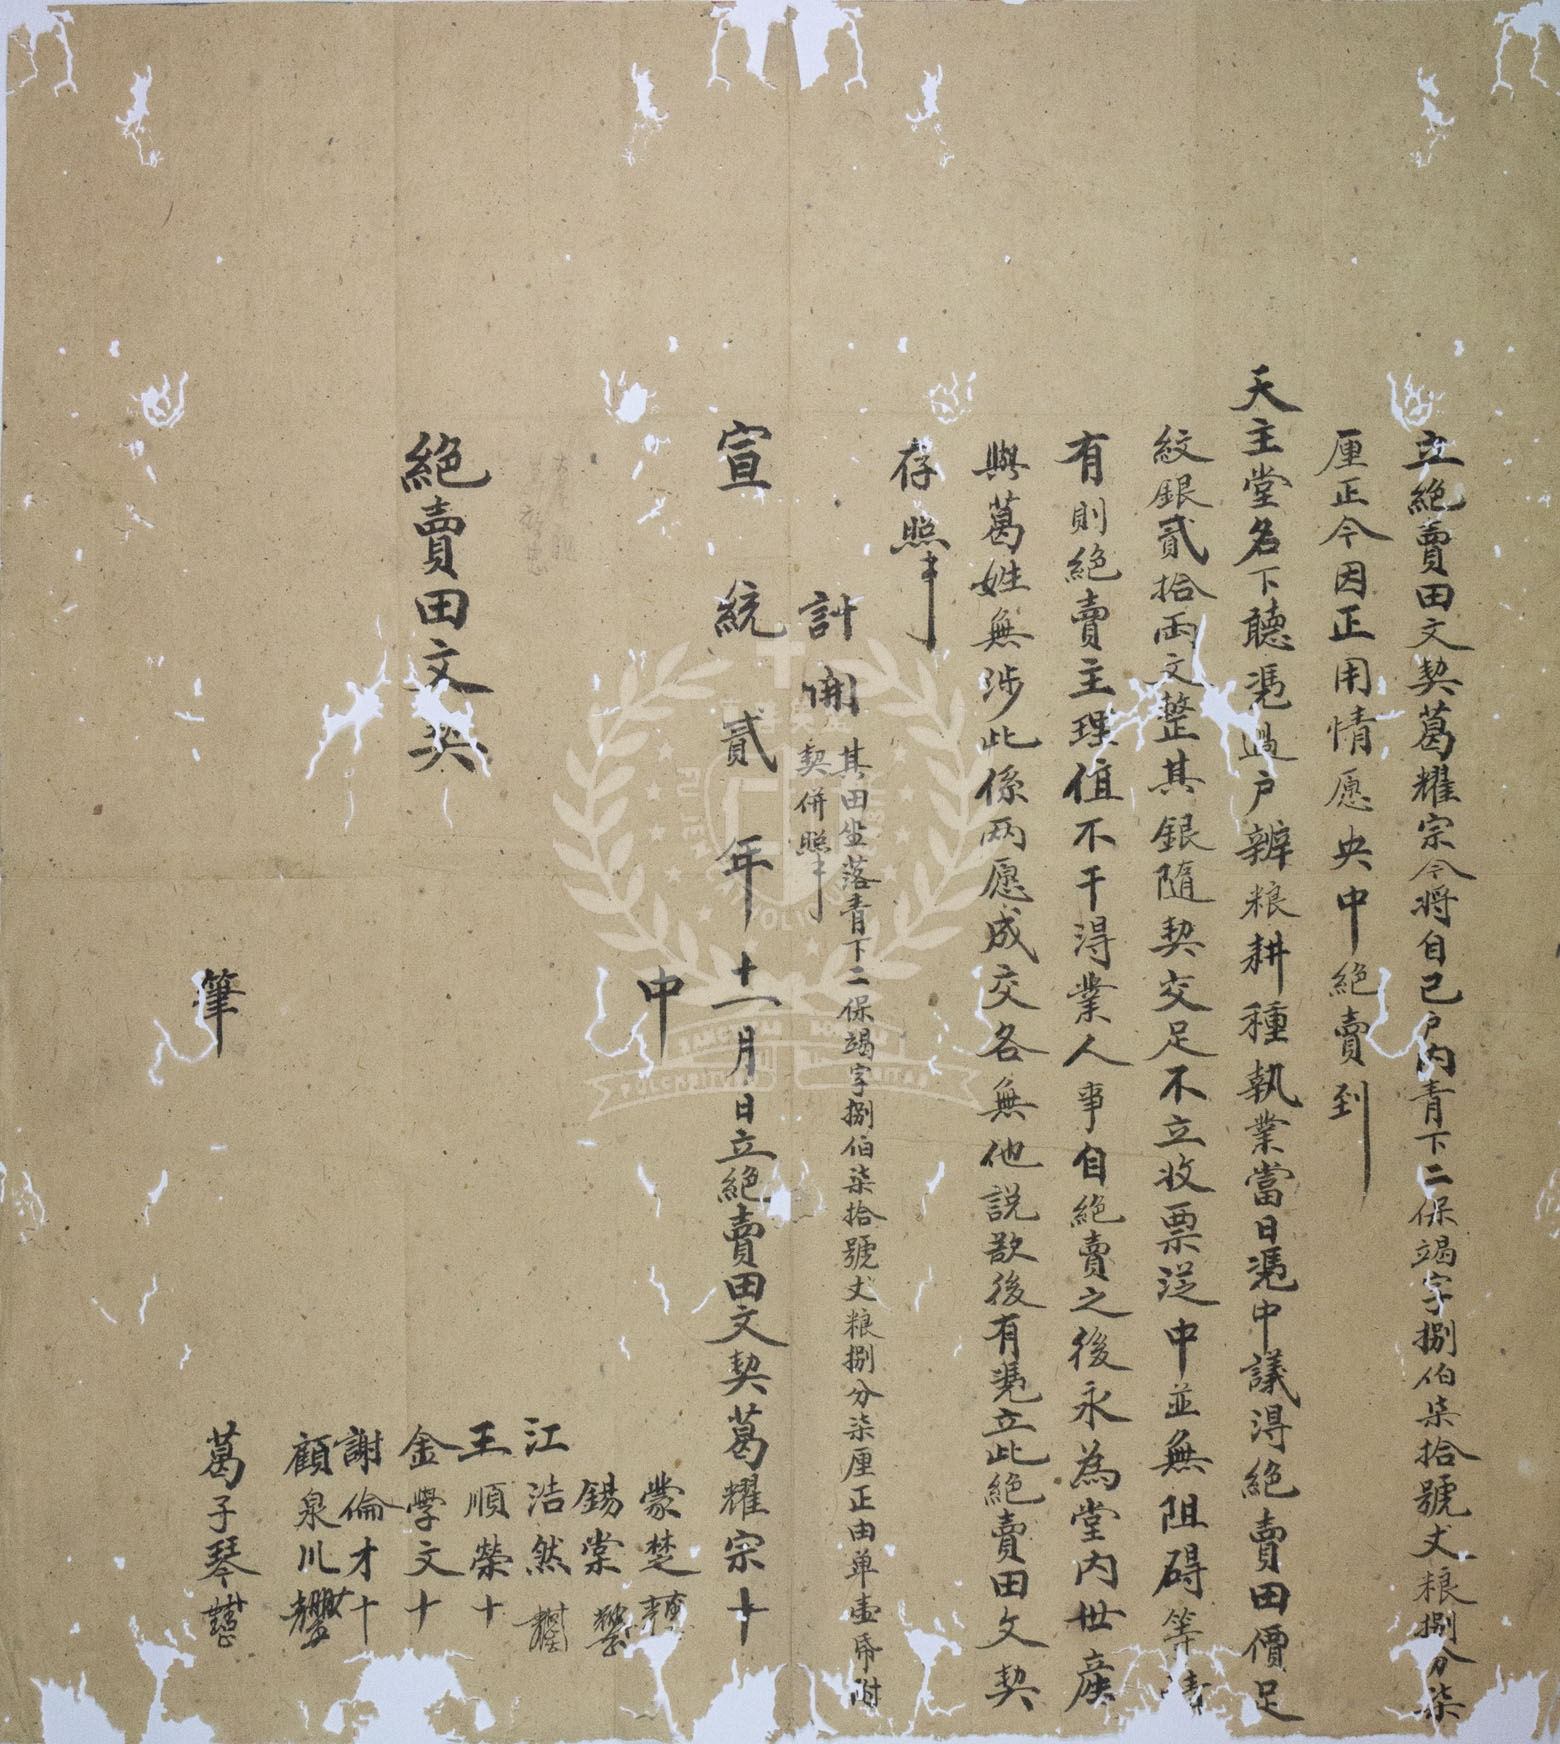 立絕賣田文契葛耀宗今將自己戶內青下二保竭字捌伯柒拾號丈粮捌分柒
厘正今因正用情愿央中絕賣到
天主堂名下聽憑過戶辦粮耕種執業當日憑中議得絕賣田價足
紋銀貳拾両文整其銀隨契交足不立收票泛中並無阻碍等情
有則絕賣主理值不干得業人事自絕賣之後永為堂內世産
與葛姓無涉此係两愿成交各無他説欲後有憑立此絕賣田文契
存照
計開 其田坐落青下二保竭字捌伯柒拾號丈粮捌分柒厘正由单壹帋附
契併照
宣統貳年十一月日立絕賣田文契葛耀宗十
中 蒙楚
錫棠
江浩然
王順榮十
金學文十
謝倫才十
顧泉川
筆 葛子琴
絕賣田文契